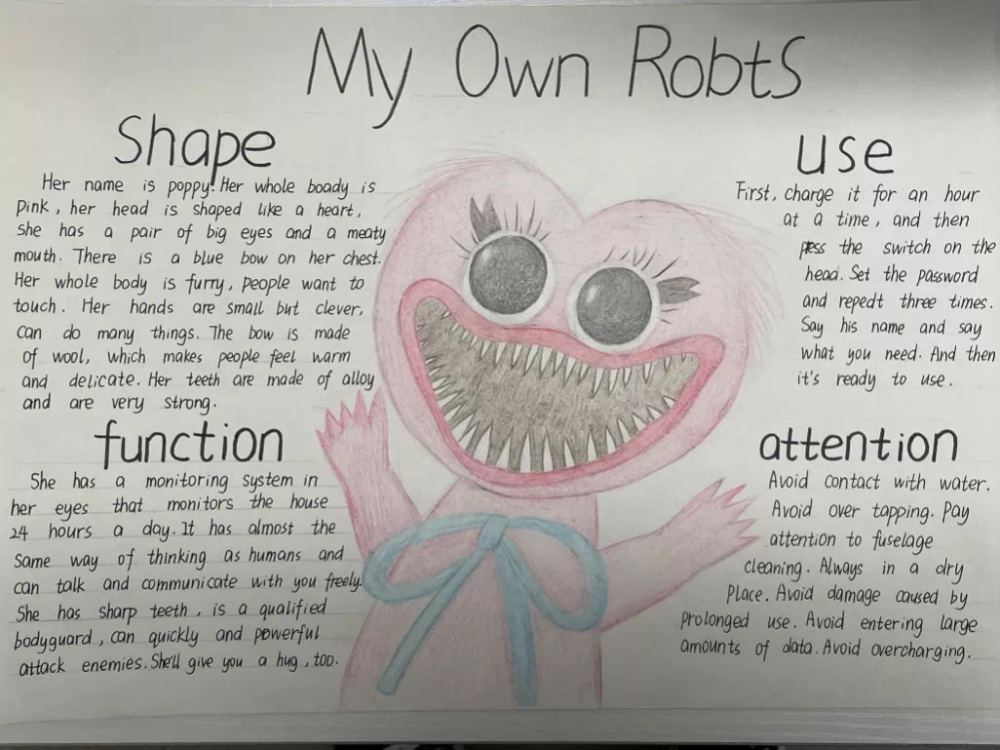 My Own Robts
Shape
Her name is poppy. Her whole boady is
Pink, her head is shaped like a heart,
She has a pair of big eyes and a meaty
mouth. There is a blue bow on her chest.
Her whole body is furry, people want to
touch. Her hands are small but clever,
can do many things. The bow is made
of wool, which makes people feel warm
and delicate. Her teeth are made of alloy
and are very strong.
function
She has a monitoring system in
her eyes that monitors the house
24 hours a day. It has almost the
Same way of thinking as humans and
can talk and communicate with you freely.
She has sharp teeth, is a qualified
bodyguard, can quickly and powerful
attack enemies. She'll give you a hug, too.
use
First, charge it for an hour
at a time, and then
press the switch on the
head. Set the password
and repedt three times.
Say his name and say
what you need. And then
it's ready to use.
attention
Avoid contact with water.
Avoid over tapping. Pay
attention to fuselage
cleaning. Always in a dry
Place. Avoid damage caused by
Prolonged use. Avoid entering large
amounts of data. Avoid overcharging.